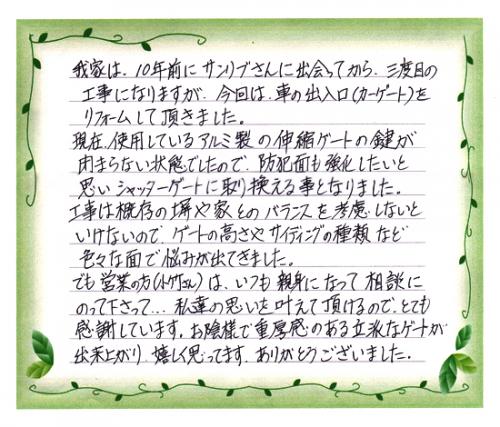 我家は、10年前にサンリブさんに出会ってから、三度目の
工事になりますが、今回は、車の出入口(カーゲート)を
リフォームして頂きました。
現在、使用しているアルミ製の伸縮ゲートの鍵が
閉まらない状態でしたので、防犯面も強化したいと
思いシャッターゲートに取り換える事となりました。
工事は既存の塀や家とのバランスを考慮しないと
いけないので、ゲートの高さやサイディングの種類など
色々な面で悩みが出てきました。
でも営業の方(トゲさん)は、いつも親身になって相談に
のって下さって… 私達の思いを叶えて頂けるので、とても
感謝しています。お陰様で重厚感のある立派なゲートが
出来上がり、嬉しく思ってます。ありがとうございました。